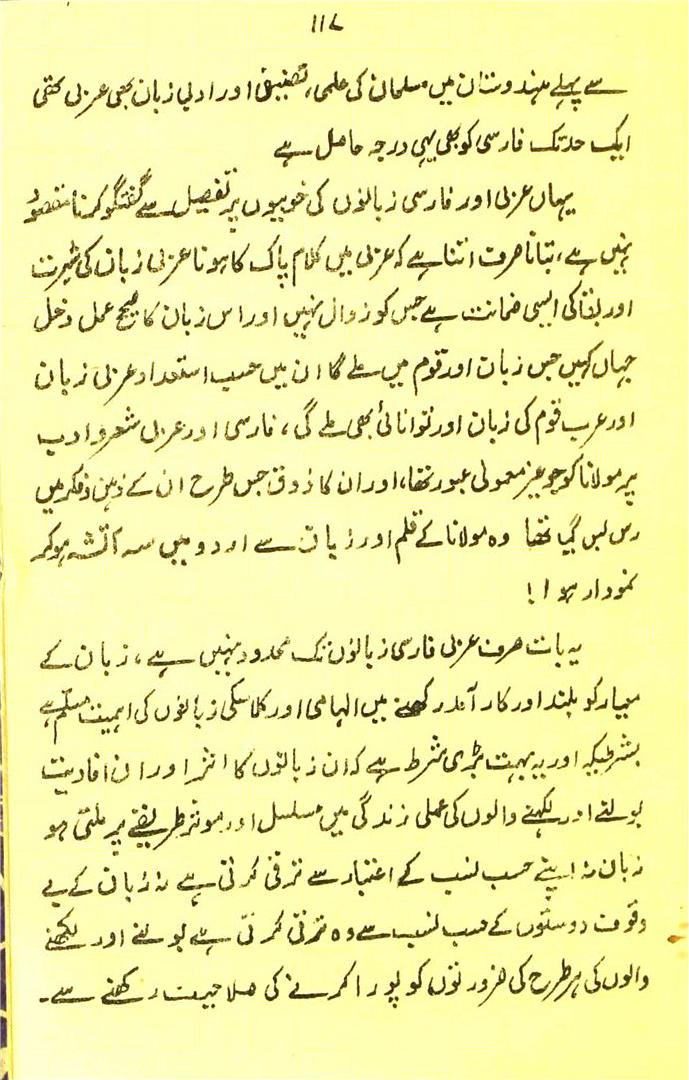 ۱۱۷
سے پہلے ہندوستان میں مسلمان کی علمی، تصنیفی اور ادبی زبان بھی عربی تھی
ایک حد تک فارسی کو بھی یہی درجہ حاصل ہے
یہاں عربی اور فارسی زبانوں کی خوبیوں پر تفصیل سے گفتگو کرنا مقصود
نہیں ہے، بتانا صرف اتنا ہے کہ عربی میں کلام پاک کا ہونا عربی زبان کی شہرت
اور بقا کی ایسی ضمانت ہے جس کو زوال نہیں اور اس زبان کا صحیح عمل دخل
جہاں کہیں جس زبان اور قوم میں ملے گا ان میں حسب استعداد عربی زبان
اور عرب قوم کی زبان اور توانائی بھی ملے گی، فارسی اور عربی شعر و ادب
پر مولانا کو جو غیر معمولی عبور تھا، اور ان کا ذوق جس طرح ان کے ذہن و فکر میں
رس بس گیا تھا وہ مولانا کے قلم اور زبان سے اردو میں سہ آتشہ ہو کر
نمودار ہوا!
یہ بات صرف عربی فارسی زبانوں تک محدود نہیں ہے، زبان کے
معیار کو بلند اور کارآمد رکھنے میں الہامی اور کلاسکی زبانوں کی اہمیت مسلم ہے
بشرطیکہ اور یہ بہت بڑی شرط ہے کہ ان زبانوں کا اثر اور ان افادیت
بولنے اور لکھنے والوں کی عملی زندگی میں مسلسل اور موثر طریقے پر ملتی ہو
زبان نہ اپنے حسب نسب کے اعتبار سے ترقی کرتی ہے نہ زبان کے بے
وقوف دوستوں کے حسب نسب سے وہ ترقی کرتی ہے بولنے اور لکھنے
والوں کی ہر طرح کی ضرورتوں کو پورا کرنے کی صلاحیت رکھنے سے۔